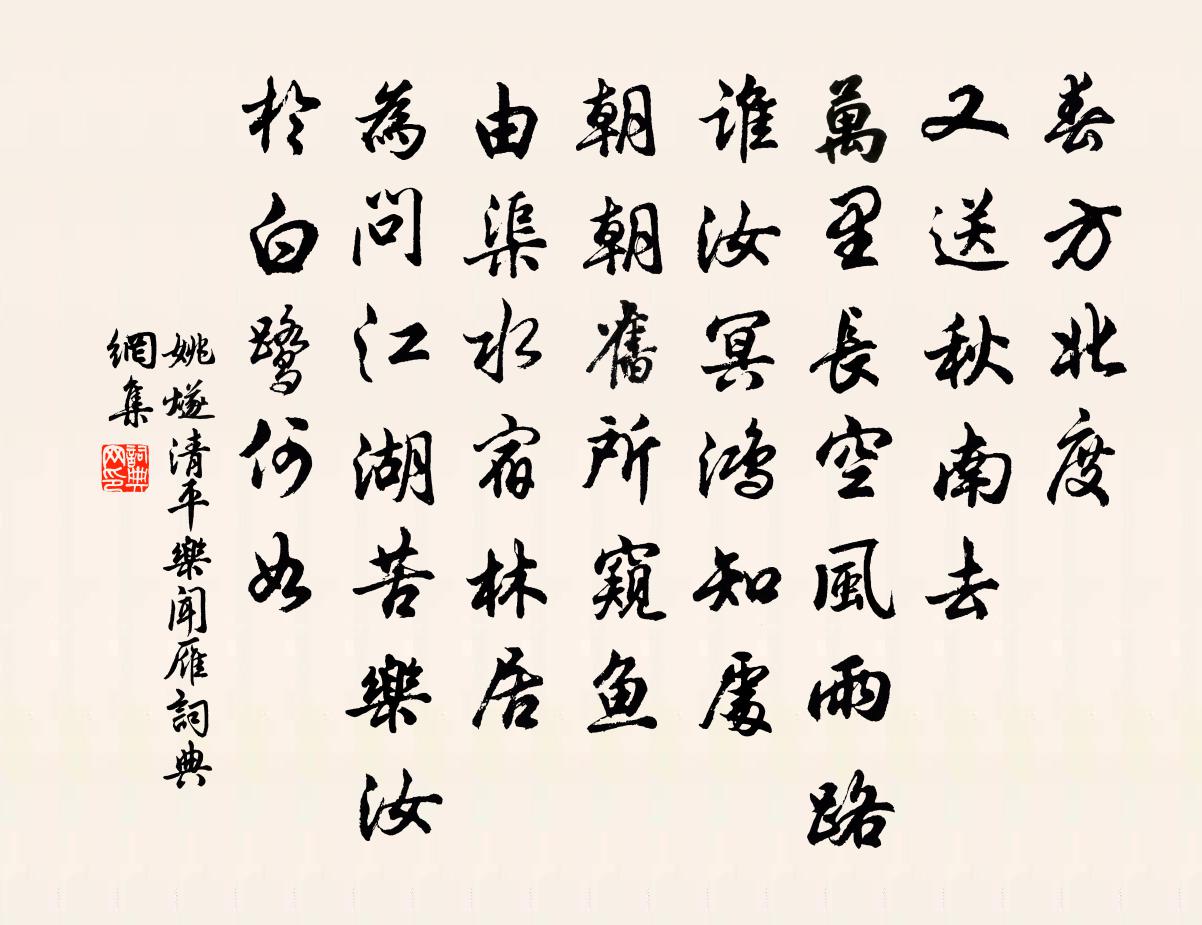 春方北度
又送秋南去
萬里長空風雨路
誰汝冥鴻知處
朝朝舊所窺魚
由渠水宿林居
為問江湖苦樂汝
於白鷺何如
姚燧清平樂聞雁詞典
網集
詞典
网印